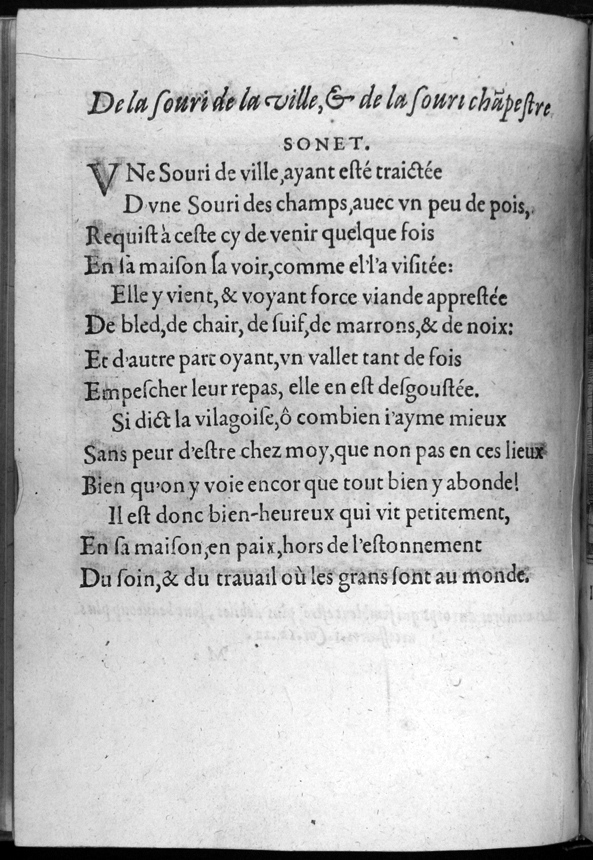 De la ſouri de la ville, & de la ſouri chāpeſtre
SONET.
VNe Souri de ville, ayant eſté traictée
D vne Souri des champs, auec vn peu de pois,
Requiſt à ceſte cy de venir quelque fois
En ſa maiſon ſa voir, comme ell'a viſitée:
Elle y vient, & voyant force viande appreſtée
De bled, de chair, de ſuif, de marrons, & de noix:
Et d'autre part oyant, vn vallet tant de fois
Empeſcher leur repas, elle en eſt deſgouſtée.
Si dict la vilagoiſe, ô combien i'ayme mieux
Sans peur d'eſtre chez moy, que non pas en ces lieux
Bien qu'on y voie encor que tout bien y abonde!
Il eſt donc bien-heureux qui vit petitement,
En ſa maiſon, en paix, hors de l'eſtonnement
Du ſoin, & du trauail où les grans ſont au monde.